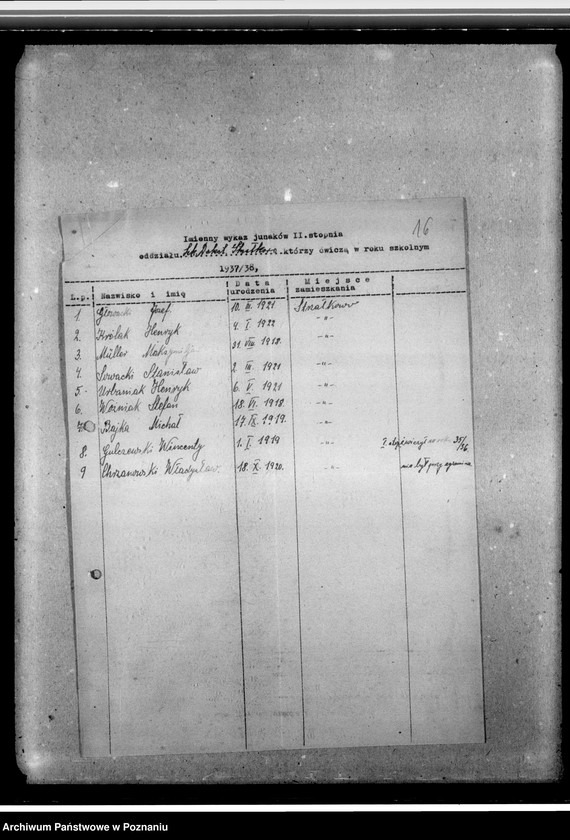 16
Imienny wykaz junaków II.stopnia
oddziału którzy ćwiczą w roku szkolnym
1937/38,
L.p. Nazwisko i imię Data urodzenia Miejsce zamieszkania
1 Józef 10. III. 1921 Strzałkowo
2. Królak Henryk 4. I. 1922 -"-
3. Müller 31. VIII 1918. -"-
4. Sowacki Stanisław 2. III. 1921 -"-
5. Urbaniak Henryk 6. V. 1921 -"-
6. Woźniak Stefan 18. VI. 1918. -"-
7. Bajka Michał 17. IX. 1919. -"-
8. Gulczewski Wincenty 1. I. 1919 -"- 35/36
9 Chrzanowski Władysław. 18. X. 1920. -"- nie był przy egzaminie
Archiwum Państwowe w Poznaniu